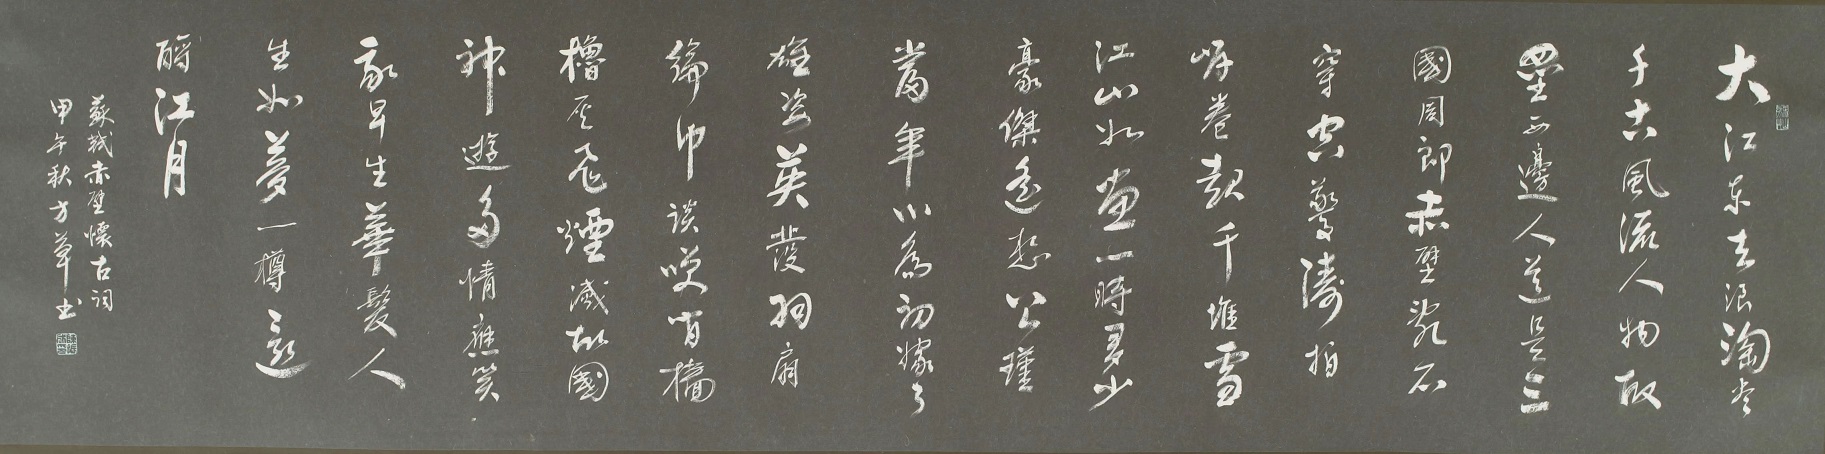 大江東去浪淘尽
千古風流人物故
壘西邊人道是三
國周郎赤壁亂石
穿空驚濤拍
岸卷起千堆雪
江山如画一時多少
豪傑遙想公瑾
當年小喬初嫁了
雄姿英發羽扇
綸巾談笑間檣
櫓灰飛煙滅故國
神遊多情應笑
我早生華髮人
生如夢一樽還
酹江月
蘇軾赤壁懷古詞
甲午秋方華书